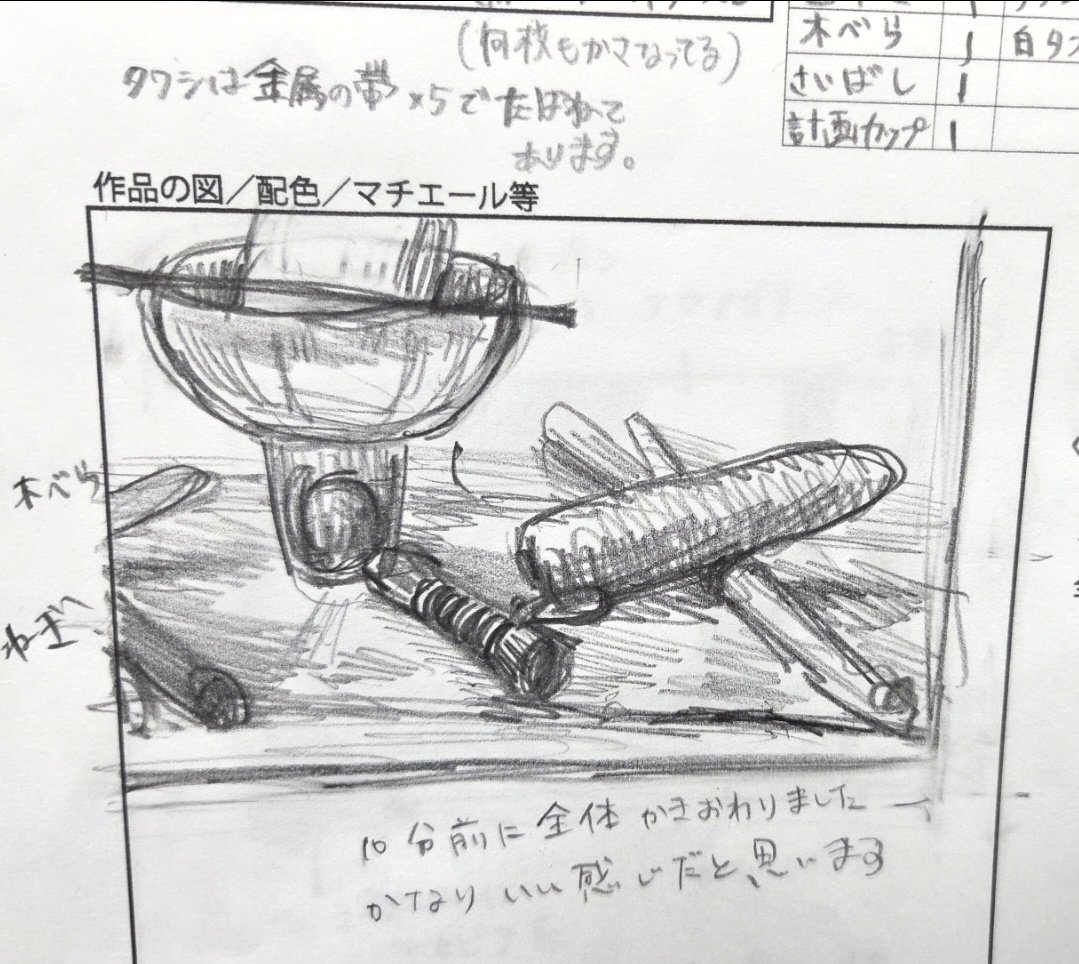 (何枚もかさなってる)
タワシは金属の帯×5でたばねて
あります。
木べら 1 白タ
さいばし 1
計画カップ 1
作品の図／配色／マチエール等
木べら
ねぎ
10分前に全体かきおわりました
かなりいい感じだと思います